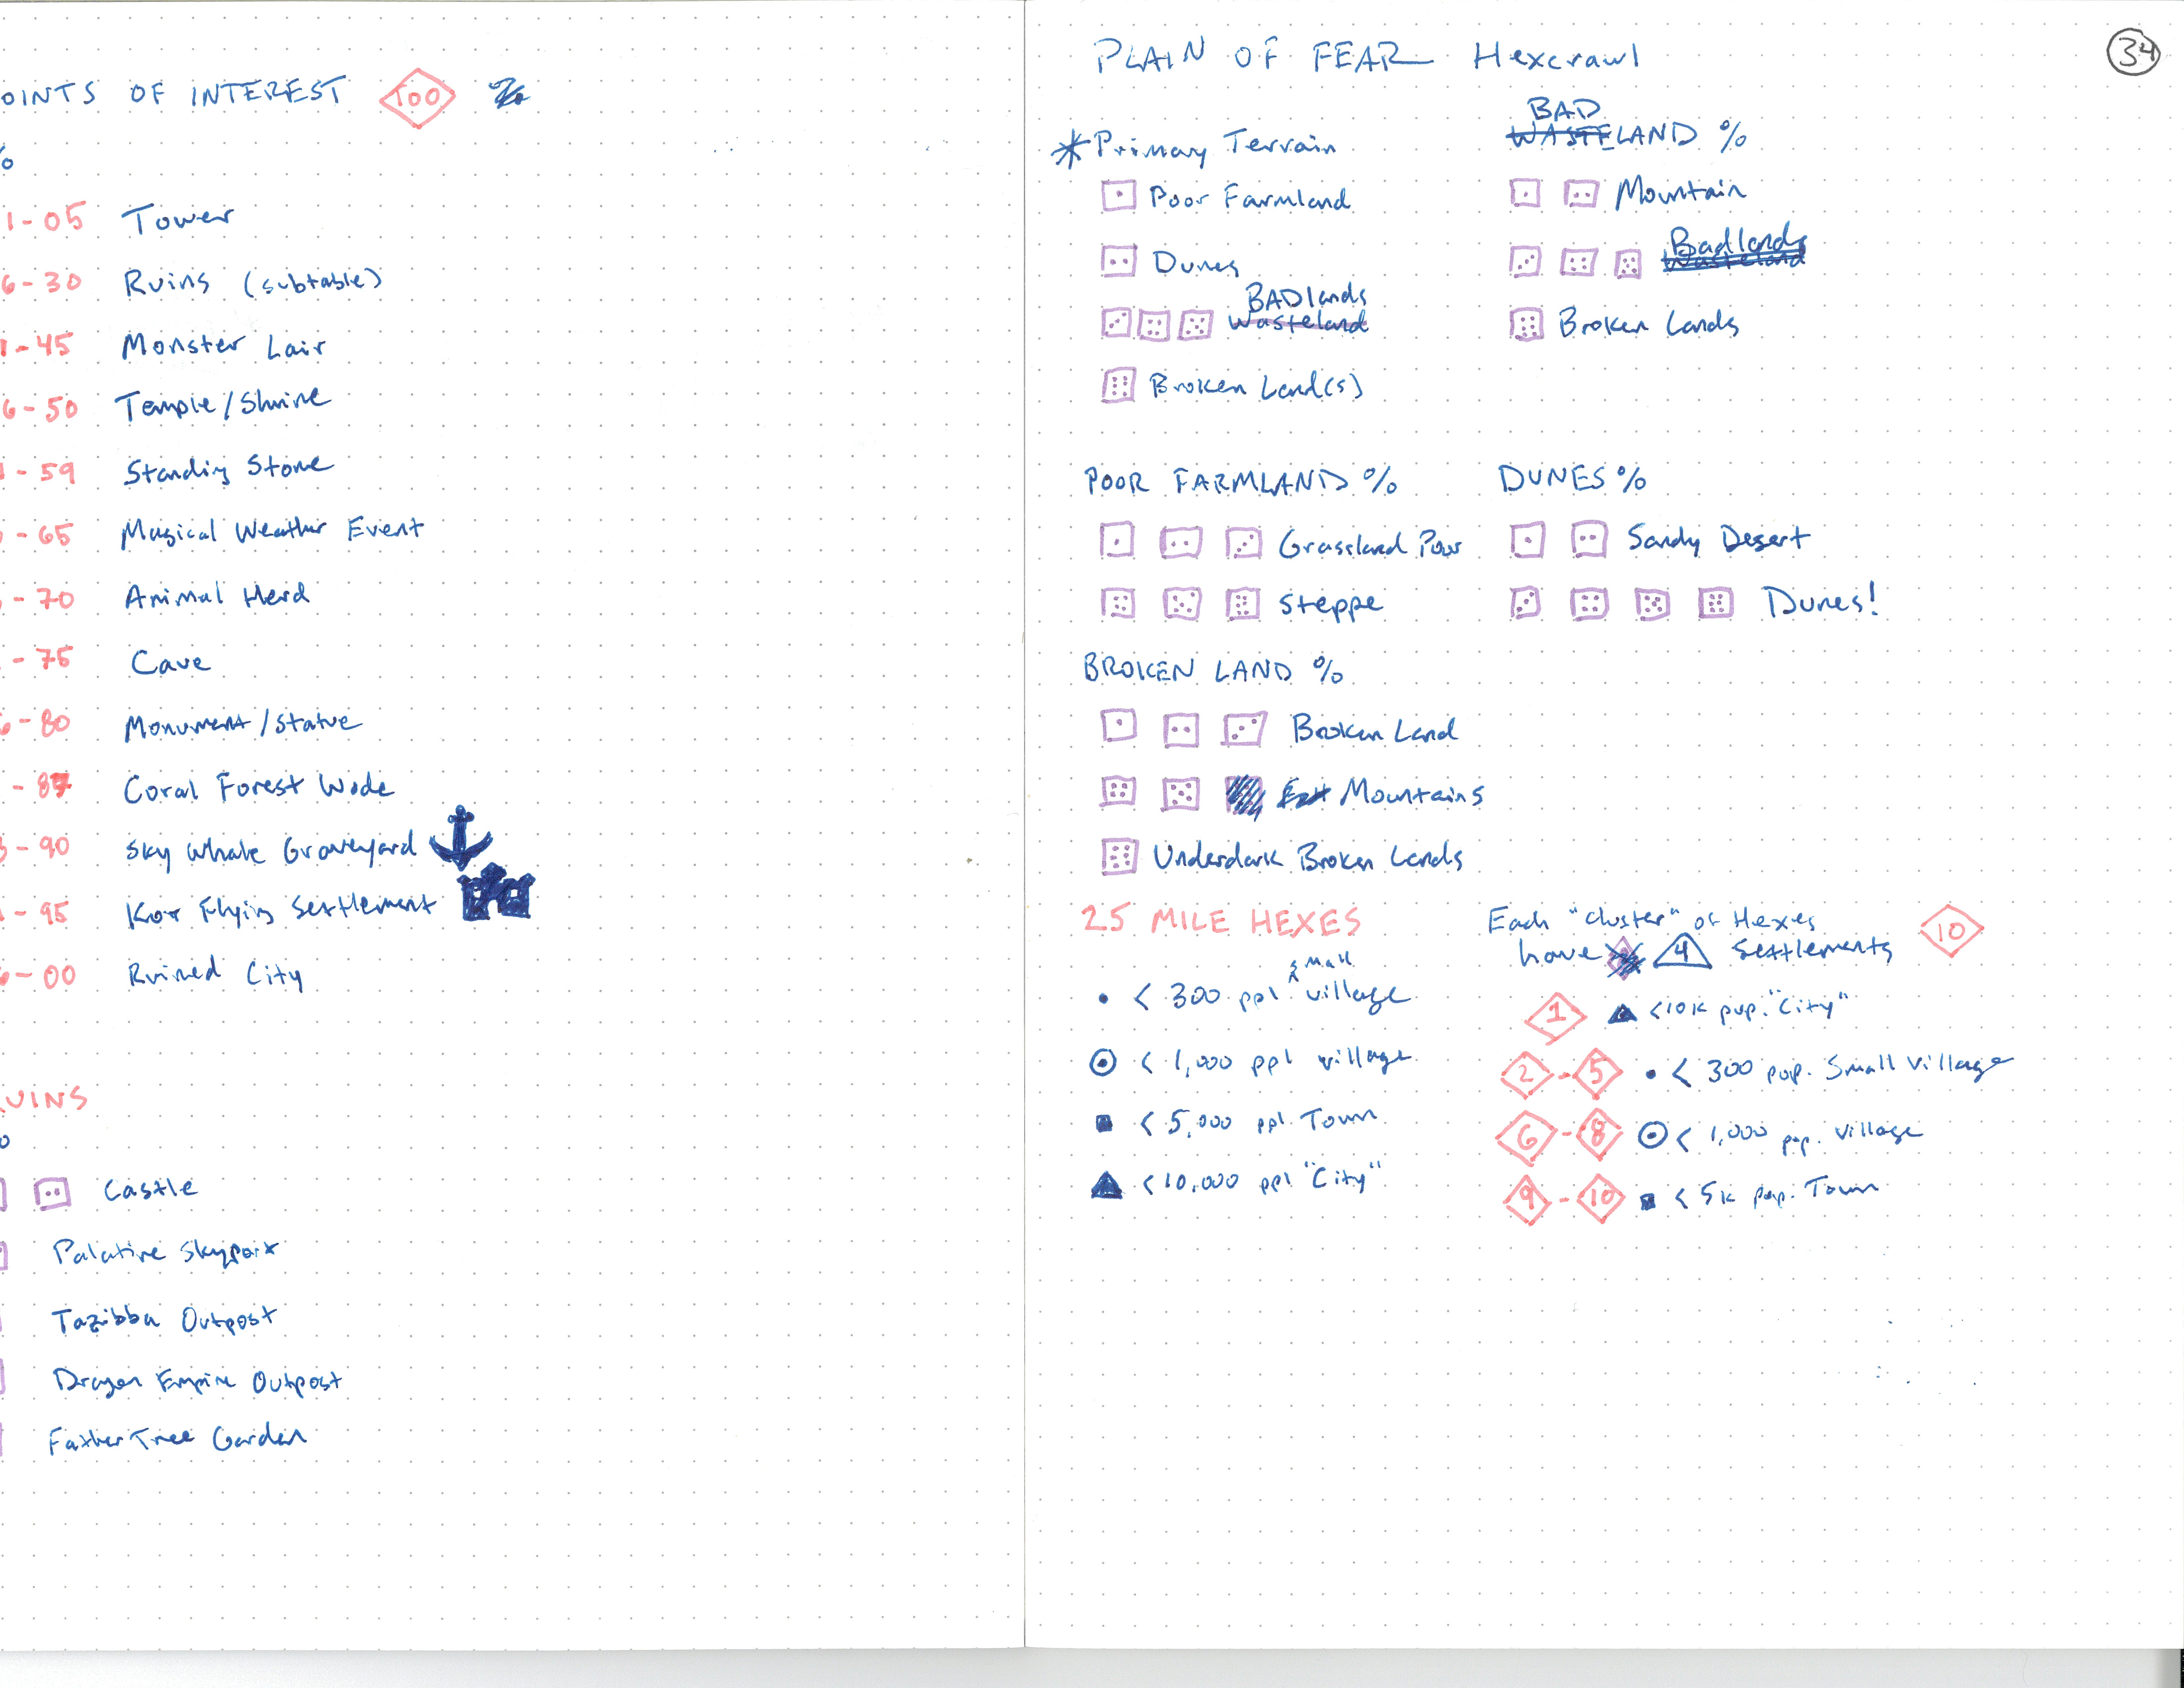 OINTS OF INTEREST 100
%
1-05 Tower
6-30 Ruins (subtable)
1-45 Monster Lair
6-50 Temple/Shrine
1-59 Standing Stone
-65 Magical Weather Event
-70 Animal Herd
-75 Cave
6-80 Monument/Statue
-87 Coral Forest Wode
-90 Sky Whale Graveyard
-95 Flying Settlement
6-00 Ruined City
UINS
Castle
Palatine Skyport
Tazibba Outpost
Dragon Empire Outpost
Father Tree Garden
34
PLAIN OF FEAR Hexcrawl
*Primary Terrain
Poor Farmland
Dunes
BADlands
Wasteland
Broken Land(s)
BAD
WASTELAND %
Mountain
Badlands
Wasteland
Broken Lands
POOR FARMLAND %
Grassland Poor
Steppe
DUNES %
Sandy Desert
Dunes!
BROKEN LAND %
Broken Land
Mountains
Underdark Broken Lands
25 MILE HEXES
small
< 300 ppl village
< 1,000 ppl village
< 5,000 ppl Town
< 10,000 ppl "City"
Each "cluster" of Hexes 10
have 4 Settlements
1 <10k pop. "City"
2-5 < 300 pop. Small Village
6-8 < 1,000 pop. village
9-10 < 5k pop. Town